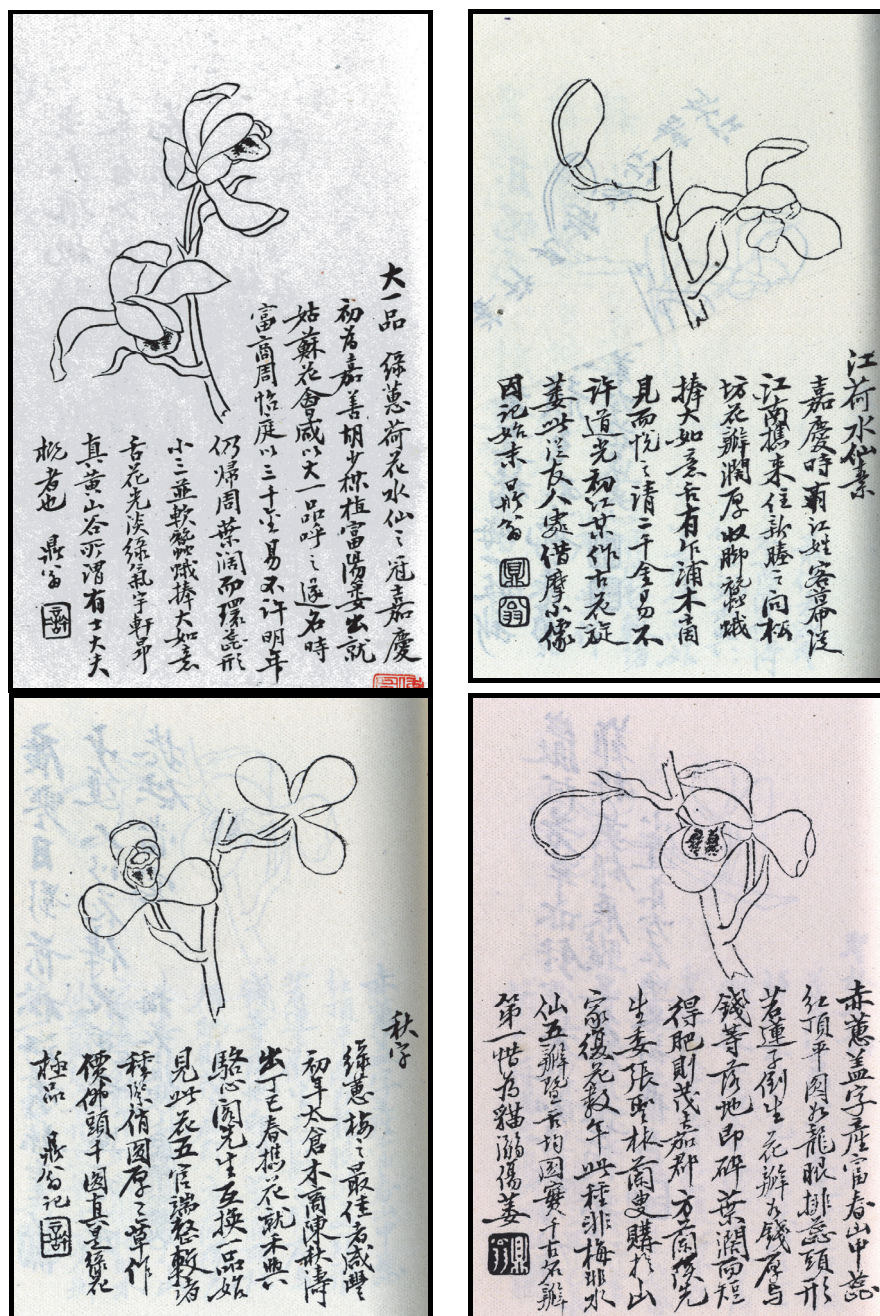 大一品
綠蕙荷花水仙之冠嘉慶
初為嘉善胡少梅植富陽蔞出就
姑蘇花會咸以大一品呼之遂名時
富商周怡庭以三千金易不許明年
仍歸周葉濶而環蕊形
小三並軟蠶蛾捧大如意
舌花光淡綠氣宇軒昂
真黃山谷所謂有士大夫
概者也 鼎翁
江荷水仙素
嘉慶時有江姓客幕從
江南攜來住新塍之問松
坊花瓣濶厚收脚蠶蛾
捧大如意舌有乍浦木商
見而悅之請二千金易不
許道光初江某作古花旋
萎此從友人處借摩小像
因記始末 鼎翁
秋字
綠蕙梅之最佳者咸豐
初年太倉木商陳秋濤
出丁巳春攜花就禾與
駱心閣先生互換一品始
見此花五官端整較諸
種俏圓厚之章作
價佛頭千圓真是綠花
極品 鼎翁記
赤蕙蓋字產富春山中蕊
紅頂平圓如龍眼排蕊頭形
若蓮子倒生花瓣如錢厚與
錢等落地即碎葉濶而短
得肥則茂嘉郡方蘭陔先
生委張聖林蘭叟購於山
家復花數年此種非梅非水
仙五瓣暨舌均圓實千古名瓣
第一惜為貓溺傷萎